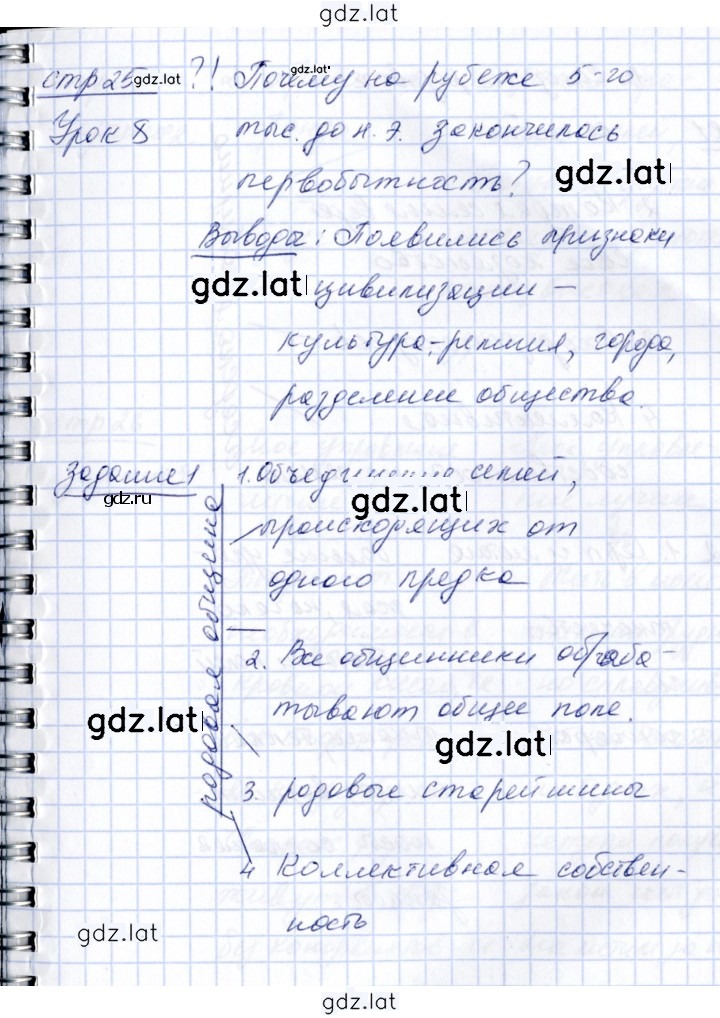 gdz.lat
стр 25 gdz.lat ?! Почему на рубеже 5-го
gdz.lat
Урок 8 тыс. до н. э. закончилось
первобытность? gdz.lat
Выводы: Появились признаки
gdz.lat цивилизации –
культура, религия, города,
разделение общества.
Задание 1 1. Объединение семей,
gdz.ru gdz.lat
происходящих от
одного предка
родовая община
2. Все общинники обраба-
тывают общее поле.
gdz.lat gdz.lat
3. родовые старейшины
4 Коллективная собствен-
ность
gdz.lat
gdz.lat